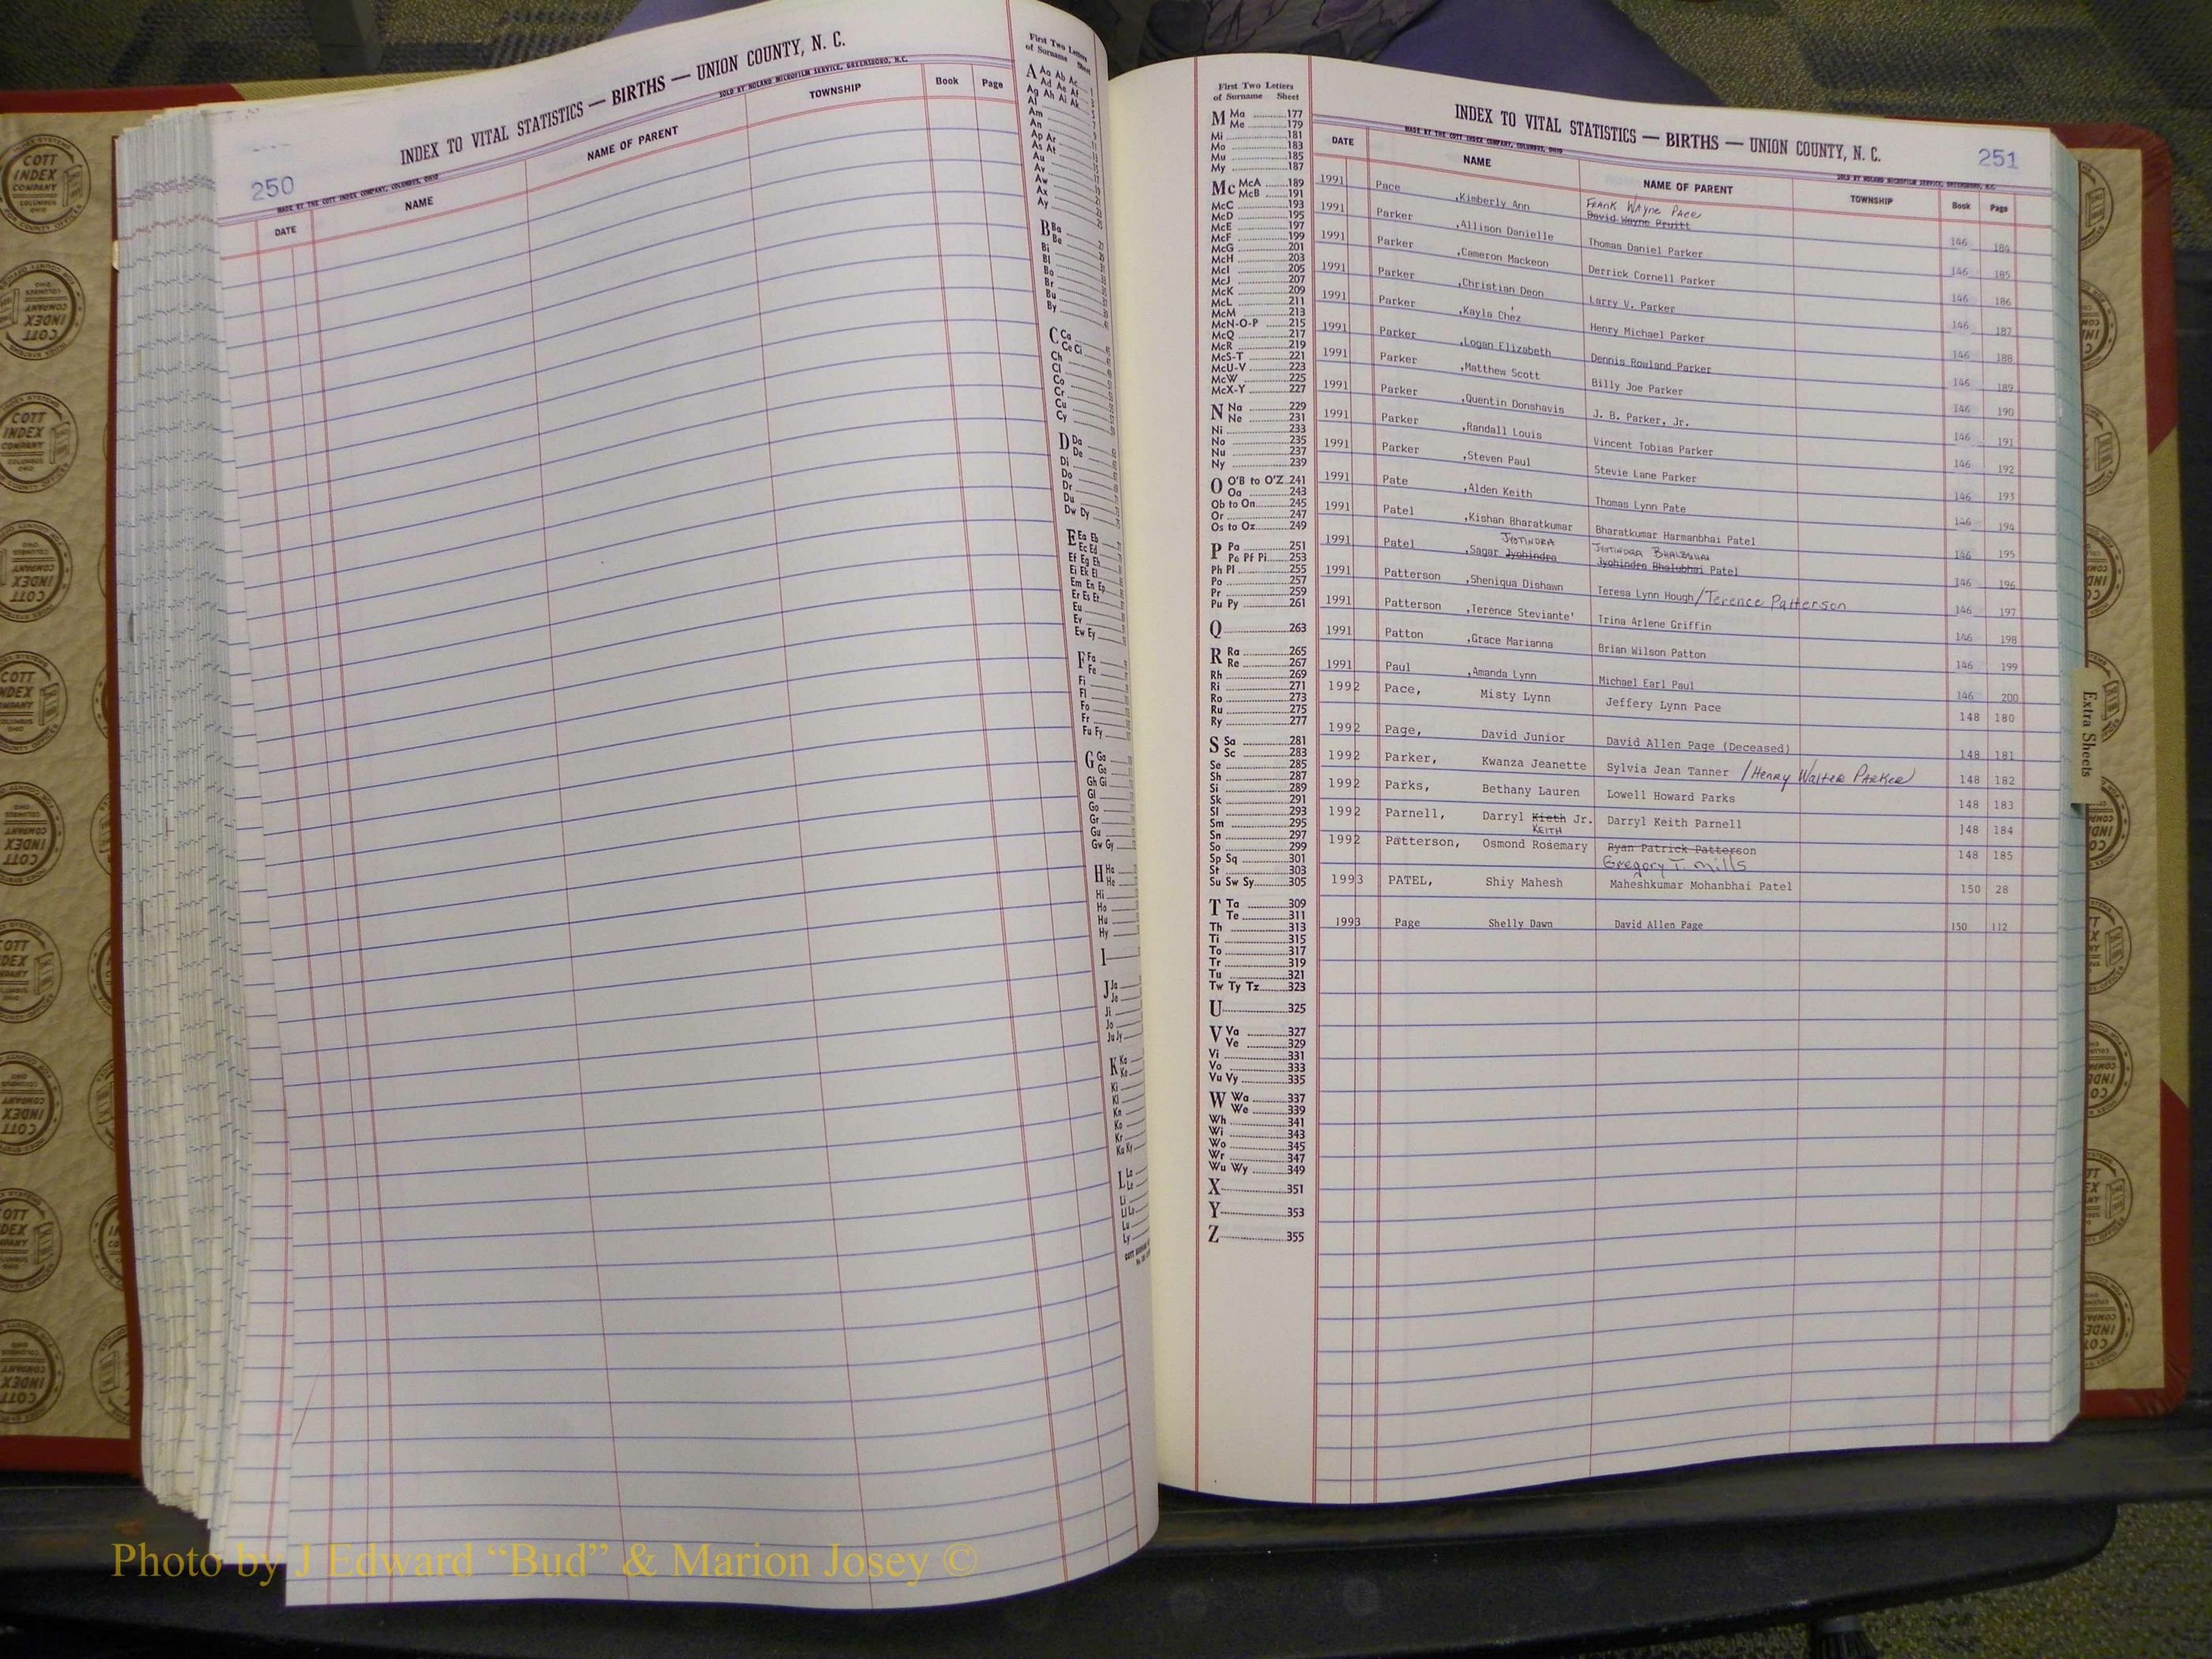 INDEX TO VITAL STATISTICS — BIRTHS — UNION COUNTY, N. C.
250
MADE BY THE COTT INDEX COMPANY, COLUMBUS, OHIO
SOLD BY NOLAND MICROFILM SERVICE, GREENSBORO, N.C.
DATE NAME NAME OF PARENT TOWNSHIP Book Page
First Two Letters
of Surname Sheet
A Aa Ab Ac
Ad Ae Af
Ag Ah Ai Ak
Al
Am
An
Ap Ar
As At
Au
Av
Aw
Ax
Ay
B Ba
Be
Bi
Bl
Bo
Br
Bu
By
C Ca
Ce Ci
Ch
Cl
Co
Cr
Cu
Cy
D Da
De
Di
Do
Dr
Du
Dw Dy
E Ea Eb
Ec Ed
Ef Eg Eh
Ei Ek El
Em En Ep
Er Es Et
Eu
Ev
Ew Ey
F Fa
Fe
Fi
Fl
Fo
Fr
Fu Fy
G Ga
Ge
Gh Gi
Gl
Go
Gr
Gu
Gw Gy
H Ha
He
Hi
Ho
Hu
Hy
I
J Ja
Je
Ji
Jo
Ju Jy
K Ka
Ke
Ki
Kl
Kn
Ko
Kr
Ku Ky
L La
Le
Li
Ll Lo
Lu
Ly
First Two Letters
of Surname Sheet
M Ma 177
Me 179
Mi 181
Mo 183
Mu 185
My 187
Mc McA 189
McB 191
McC 193
McD 195
McE 197
McF 199
McG 201
McH 203
McI 205
McJ 207
McK 209
McL 211
McM 213
McN-O-P 215
McQ 217
McR 219
McS-T 221
McU-V 223
McW 225
McX-Y 227
N Na 229
Ne 231
Ni 233
No 235
Nu 237
Ny 239
O O'B to O'Z 241
Oa 243
Ob to On 245
Or 247
Os to Oz 249
P Pa 251
Pe Pf Pi 253
Ph Pl 255
Po 257
Pr 259
Pu Py 261
Q 263
R Ra 265
Re 267
Rh 269
Ri 271
Ro 273
Ru 275
Ry 277
S Sa 281
Sc 283
Se 285
Sh 287
Si 289
Sk 291
Sl 293
Sm 295
Sn 297
So 299
Sp Sq 301
St 303
Su Sw Sy 305
T Ta 309
Te 311
Th 313
Ti 315
To 317
Tr 319
Tu 321
Tw Ty Tz 323
U 325
V Va 327
Ve 329
Vi 331
Vo 333
Vu Vy 335
W Wa 337
We 339
Wh 341
Wi 343
Wo 345
Wr 347
Wu Wy 349
X 351
Y 353
Z 355
INDEX TO VITAL STATISTICS — BIRTHS — UNION COUNTY, N. C.
251
MADE BY THE COTT INDEX COMPANY, COLUMBUS, OHIO
SOLD BY NOLAND MICROFILM SERVICE, GREENSBORO, N.C.
DATE NAME NAME OF PARENT TOWNSHIP Book Page
Frank Wayne Pace
1991 Pace ,Kimberly Ann David Wayne Pruitt 146 184
1991 Parker ,Allison Danielle Thomas Daniel Parker 146 185
1991 Parker ,Cameron Mackeon Derrick Cornell Parker 146 186
1991 Parker ,Christian Deon Larry V. Parker 146 187
1991 Parker ,Kayla Chez' Henry Michael Parker 146 188
1991 Parker ,Logan Elizabeth Dennis Rowland Parker 146 189
1991 Parker ,Matthew Scott Billy Joe Parker 146 190
1991 Parker ,Quentin Donshavis J. B. Parker, Jr. 146 191
1991 Parker ,Randall Louis Vincent Tobias Parker 146 192
1991 Parker ,Steven Paul Stevie Lane Parker 146 193
1991 Pate ,Alden Keith Thomas Lynn Pate 146 194
1991 Patel ,Kishan Bharatkumar Bharatkumar Harmanbhai Patel 146 195
Jyotindra Jyotindra Bhalubhai
1991 Patel ,Sagar Jyohindra Jyohindra Bhalubhai Patel 146 196
1991 Patterson ,Sheniqua Dishawn Teresa Lynn Hough/Terence Patterson 146 197
1991 Patterson ,Terence Steviante' Trina Arlene Griffin 146 198
1991 Patton ,Grace Marianna Brian Wilson Patton 146 199
1991 Paul ,Amanda Lynn Michael Earl Paul 146 200
1992 Pace, Misty Lynn Jeffery Lynn Pace 148 180
1992 Page, David Junior David Allen Page (Deceased) 148 181
1992 Parker, Kwanza Jeanette Sylvia Jean Tanner /Henry Walter Parker 148 182
1992 Parks, Bethany Lauren Lowell Howard Parks 148 183
1992 Parnell, Darryl Kieth Jr. Darryl Keith Parnell 148 184
Keith
1992 Patterson, Osmond Rosemary Ryan Patrick Patterson 148 185
Gregory T. Mills
1993 PATEL, Shiy Mahesh Maheshkumar Mohanbhai Patel 150 28
1993 Page Shelly Dawn David Allen Page 150 112
Extra Sheets
COTT INDEX COMPANY
Photo by J Edward “Bud” & Marion Josey ©